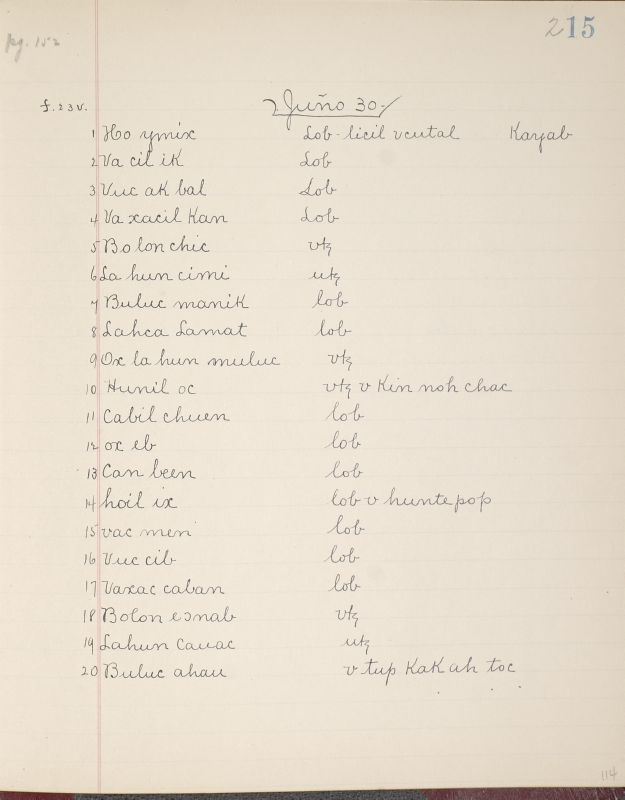 pg. 152
215
f. 23v.
Juño 30-
1 Ho ymix Lob - licil v cutal Kayab
2 Va cil ik Lob
3 Vuc ak bal Lob
4 Va xacil Kan Lob
5 Bolon chic vtz
6 La hun cimi utz
7 Buluc manik lob
8 Lahca Lamat lob
9 Ox la hun muluc vtz
10 Hunil oc vtz v Kin noh chac
11 Cabil chuen lob
12 ox eb lob
13 Can been lob
14 hoil ix lob v hunte pop
15 vac men lob
16 Vuc cib lob
17 Vaxac caban lob
18 Bolon eɔnab vtz
19 Lahun Cauac utz
20 Buluc ahau v tup KaK ah toc
114